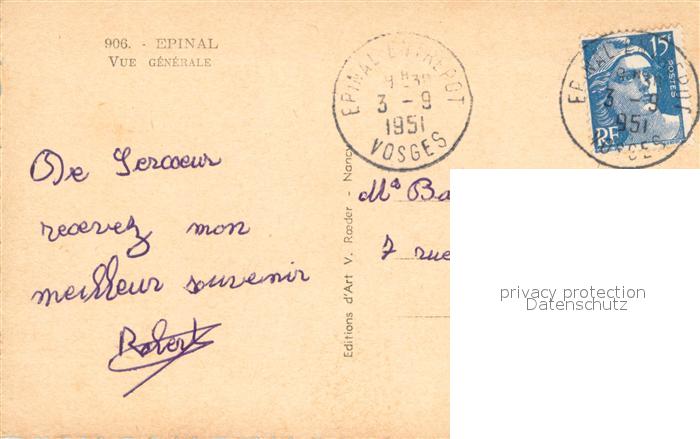 906. - EPINAL
VUE GÉNÉRALE
EPINAL-ENTREPOT
9H30
3 - 9
1951
VOSGES
15F
POSTES
RF
EPINAL-ENTREPOT
9H30
3 - 9
1951
VOSGES
De Sercoeur
recevez mon
meilleur souvenir
Robert
Editions d'Art V. Rœder - Nancy
7 rue
privacy protection
Datenschutz